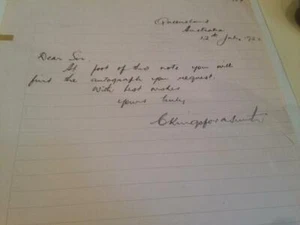 Queensland
Australia
12th July
Dear Sir
At foot of this note you will
find the autograph you request.
With best wishes
yours truly
C Kingsford Smith